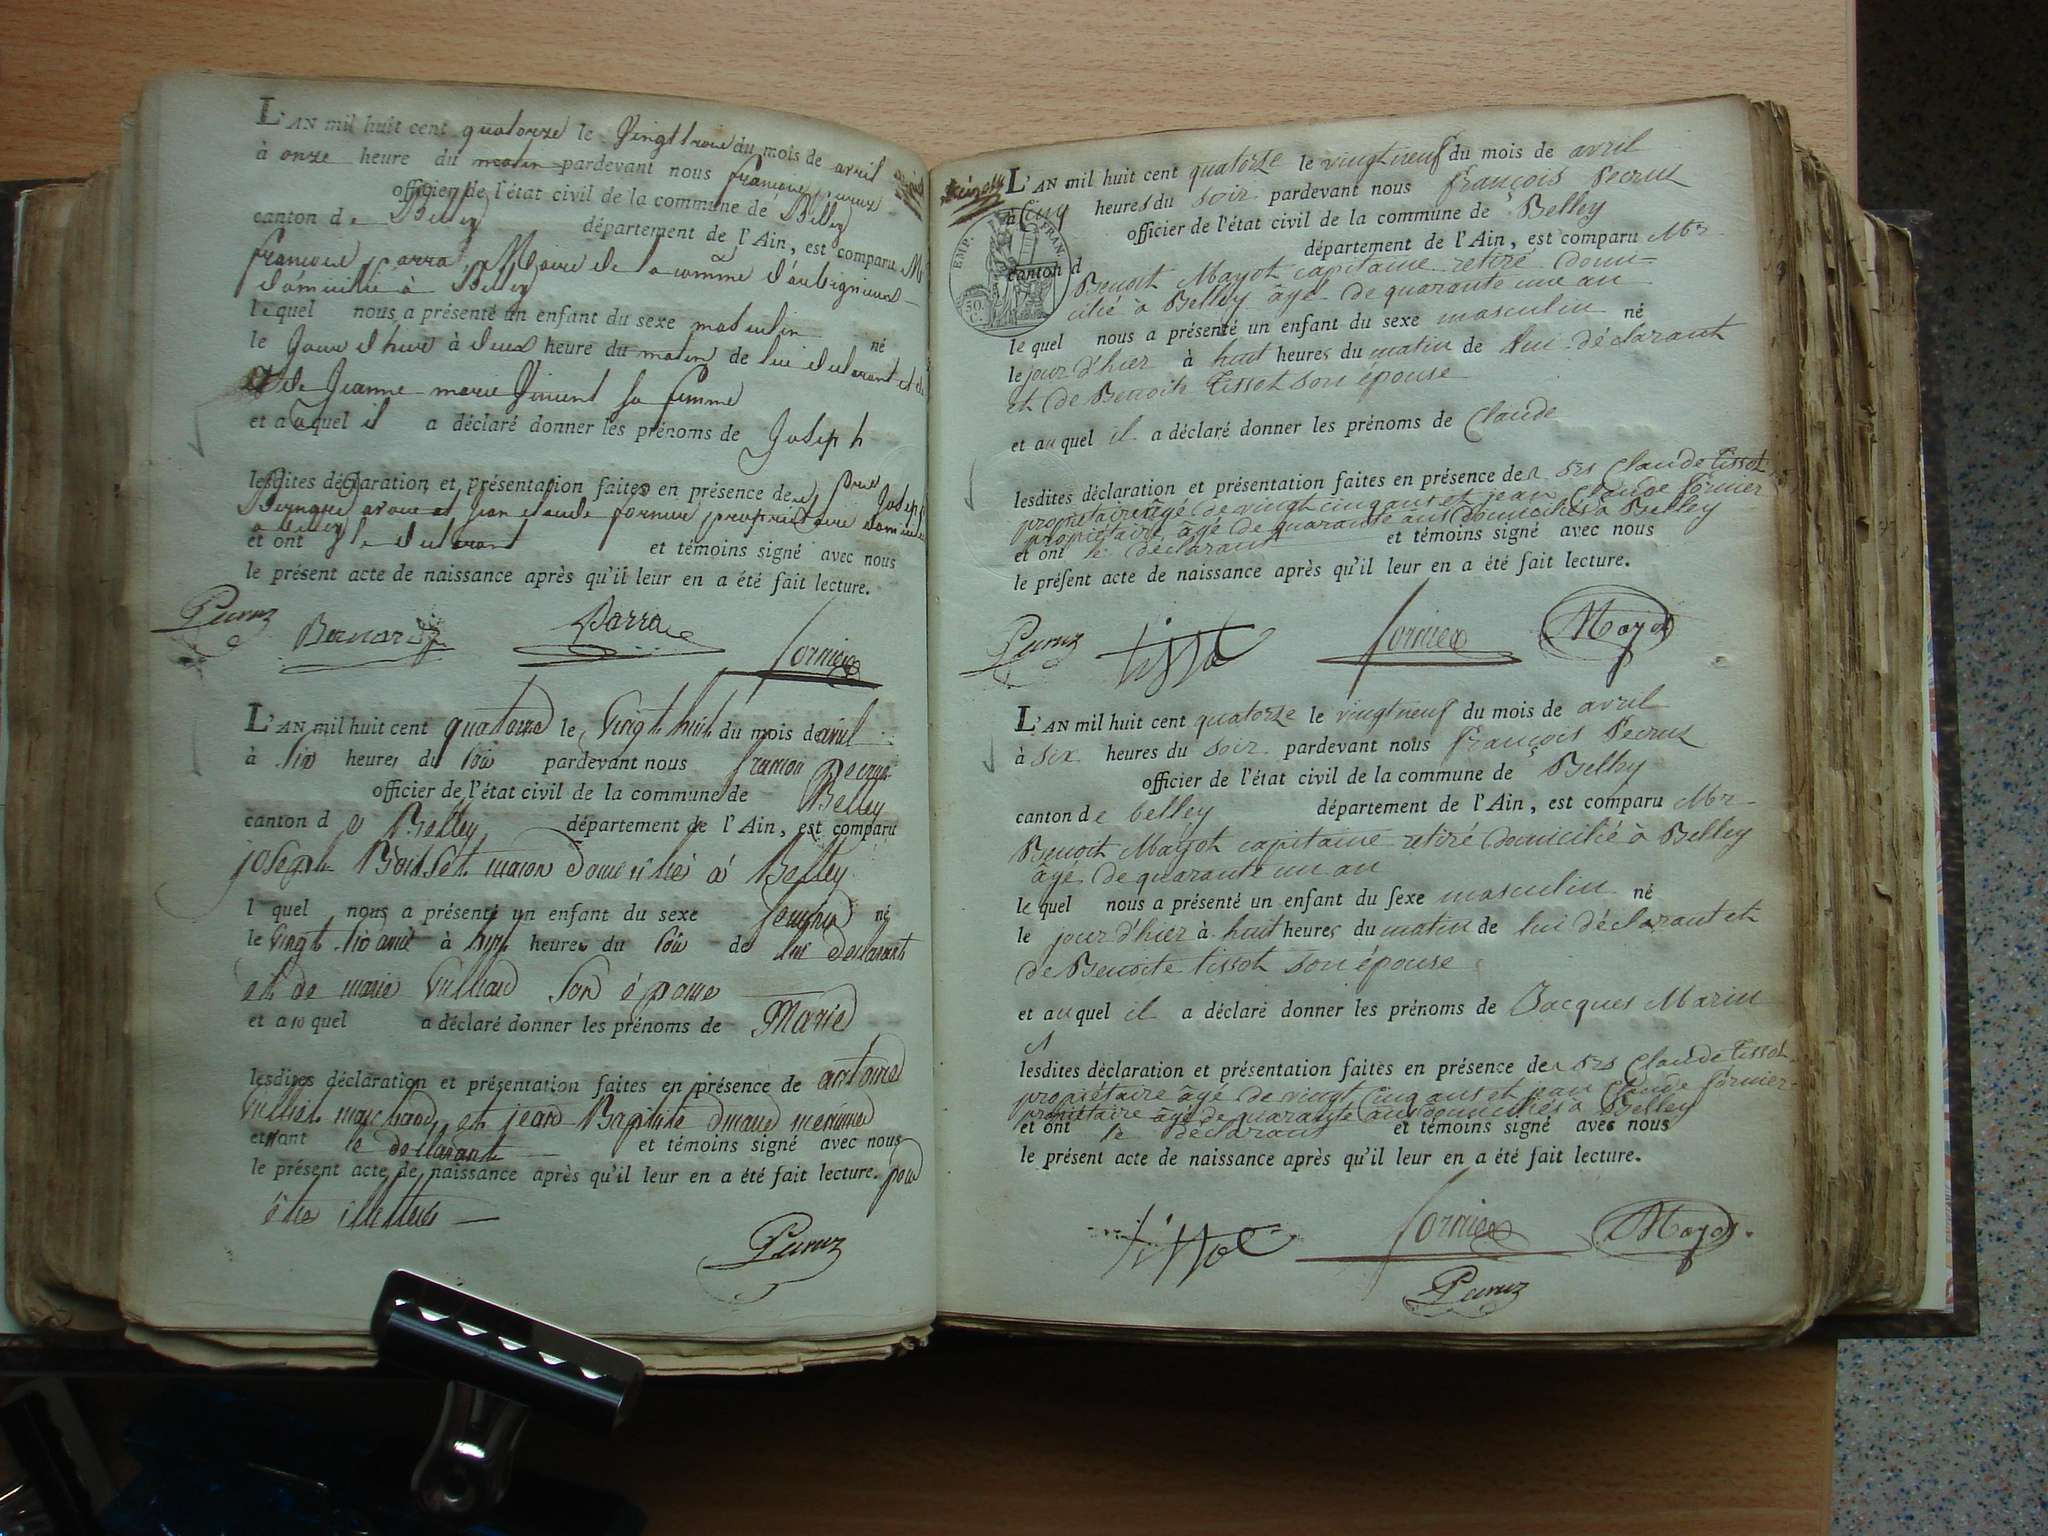 L'AN mil huit cent quatorze le Vingt trois du mois de avril
à onze heure du matin pardevant nous françois peruz
officier de l'état civil de la commune de Belley
canton de Belley département de l'Ain, est comparu Mr
françois parra Maire de la comme d'aubignieux
domicilié à Belley
lequel nous a présenté un enfant du sexe masculin né
le Jour d'hier à deux heure du matin de lui declarant et de
et de Jeanne marie Vincent sa femme
et auquel il a déclaré donner les prénoms de Joseph
lesdites déclaration et présentation faites en présence de Joseph
avoué et Jean claude fornier propriétaire domicilié
a Belley
et ont le declarant et témoins signé avec nous
le présent acte de naissance après qu'il leur en a été fait lecture.
Peruz Parra fornier
L'AN mil huit cent quatorze le Vingt huit du mois de avril
à Six heures du soir pardevant nous françois Peruz
officier de l'état civil de la commune de Belley
canton de Belley département de l'Ain, est comparu
joseph Boisset maçon domicilié à Belley
l quel nous a présenté un enfant du sexe feminin né
le vingt six avril à huit heures du soir de lui declarant
et de marie Vulliod son épouse
et a quel a déclaré donner les prénoms de Marie
lesdites déclaration et présentation faites en présence de antoine
Vulliet marchand et jean Baptiste menuisier
et ont le declarant et témoins signé avec nous
le présent acte de naissance après qu'il leur en a été fait lecture. pour
être illettrés
Peruz
L'AN mil huit cent quatorze le vingt neuf du mois de avril
à Cinq heures du soir pardevant nous françois Peruz
officier de l'état civil de la commune de Belley
EMP. FRAN. 50 C.
canton d département de l'Ain, est comparu Mr
Benoit Mayot capitaine retiré domi-
cilié à Belley âgé de quarante une an
lequel nous a présenté un enfant du sexe masculin né
le jour d'hier à huit heures du matin de lui déclarant
et de Benoite Tissot son épouse
et auquel il a déclaré donner les prénoms de Claude
lesdites déclaration et présentation faites en présence des srs Claude Tissot
propriétaire âgé de vingt cinq ans et jean Claude fornier
propriétaire âgé de quarante ans domiciliés à Belley
et ont le déclarant et témoins signé avec nous
le présent acte de naissance après qu'il leur en a été fait lecture.
Peruz Tissot fornier Mayot
L'AN mil huit cent quatorze le vingt neuf du mois de avril
à six heures du soir pardevant nous françois Peruz
officier de l'état civil de la commune de Belley
canton de belley département de l'Ain, est comparu Mr
Benoit Mayot capitaine retiré domicilié à Belley
âgé de quarante un an
lequel nous a présenté un enfant du sexe masculin né
le jour d'hier à huit heures du matin de lui déclarant et
de Benoite Tissot son épouse
et auquel il a déclaré donner les prénoms de Jacques Marin
lesdites déclaration et présentation faites en présence des srs Claude Tissot
propriétaire âgé de vingt cinq ans et jean Claude fornier
propriétaire âgé de quarante ans domiciliés à Belley
et ont le déclarant et témoins signé avec nous
le présent acte de naissance après qu'il leur en a été fait lecture.
Tissot fornier Mayot
Peruz